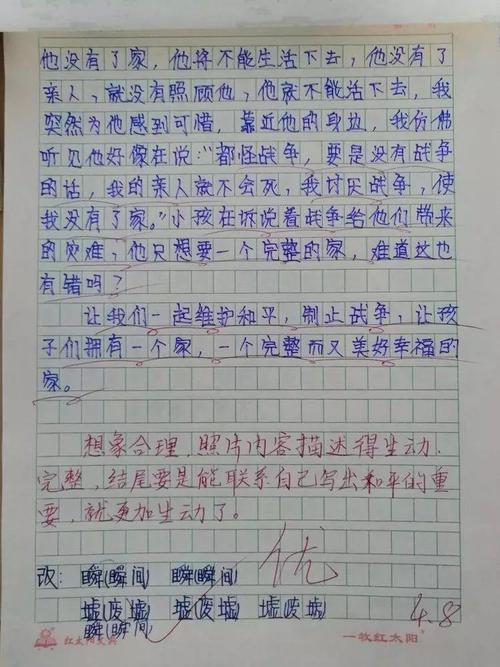 他没有了家，他将不能生活下去，他没有了
亲人，就没有照顾他，他就不能活下去，我
突然为他感到可惜，靠近他的身边，我仿佛
听见他好像在说："都怪战争，要是没有战争
的话，我的亲人就不会死，我讨厌战争，使
我没有了家。"小孩在诉说着战争给他们带来
的灾难，他只想要一个完整的家，难道这也
有错吗？
让我们一起维护和平，制止战争，让孩
子们拥有一个家，一个完整而又美好幸福的
家。
想象合理，照片内容描述得生动、
完整，结尾要是能联系自己写出和平的重
要，就更加生动了。
优
改：瞬(瞬间) 瞬(瞬间)
墟(废墟) 墟(废墟) 墟(废墟)
瞬(瞬间)
4.8
红太阳文具
一牧红太阳